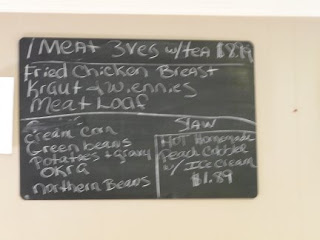 1 Meat 3 Veg w/tea
Fried Chicken Breast
Kraut & Wiennies
Meat Loaf
Cream Corn
Green beans
Potatoes & gravy
Okra
Northern Beans
Slaw
Hot Homemade
Peach Cobbler
w/ Ice Cream
$1.89